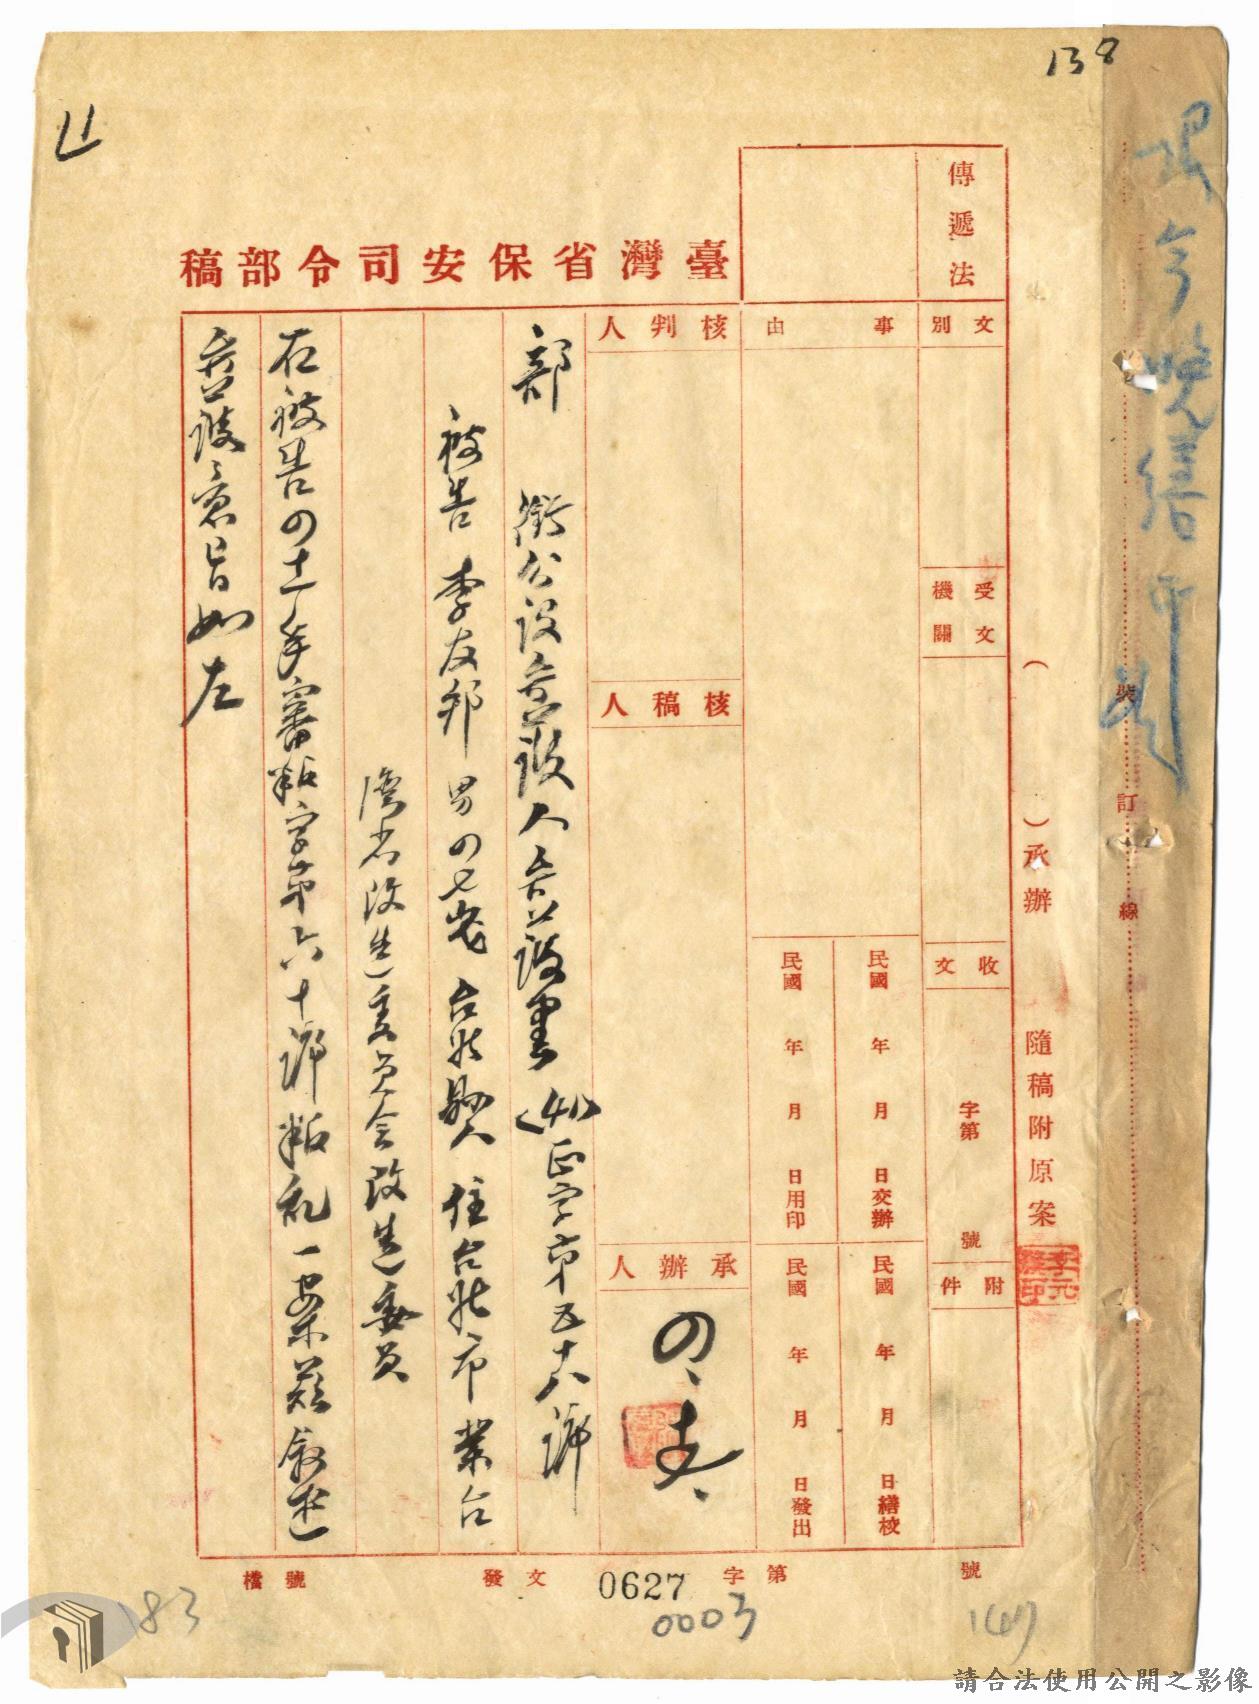 138
傳遞法
臺灣省保安司令部稿
限今晚繕印
裝訂線
（　　）承辦　隨稿附原案
文別
受文機關
收文
字第　號
附件
事由
民國　年　月　日交辦
民國　年　月　日繕校
民國　年　月　日用印
民國　年　月　日發出
核判人
核稿人
承辦人
部銜公設答辯人答辯書（41）正字第五十八號
被告 李友邦 男 四七歲 台北縣人 住台北市 業台
灣省改造委員會改造委員
右被告四十一年審叛字第六十號叛亂一案茲敘述
答辯意旨如左
檔號
發文
字第　號
0627
0003
183
147
請合法使用公開之影像